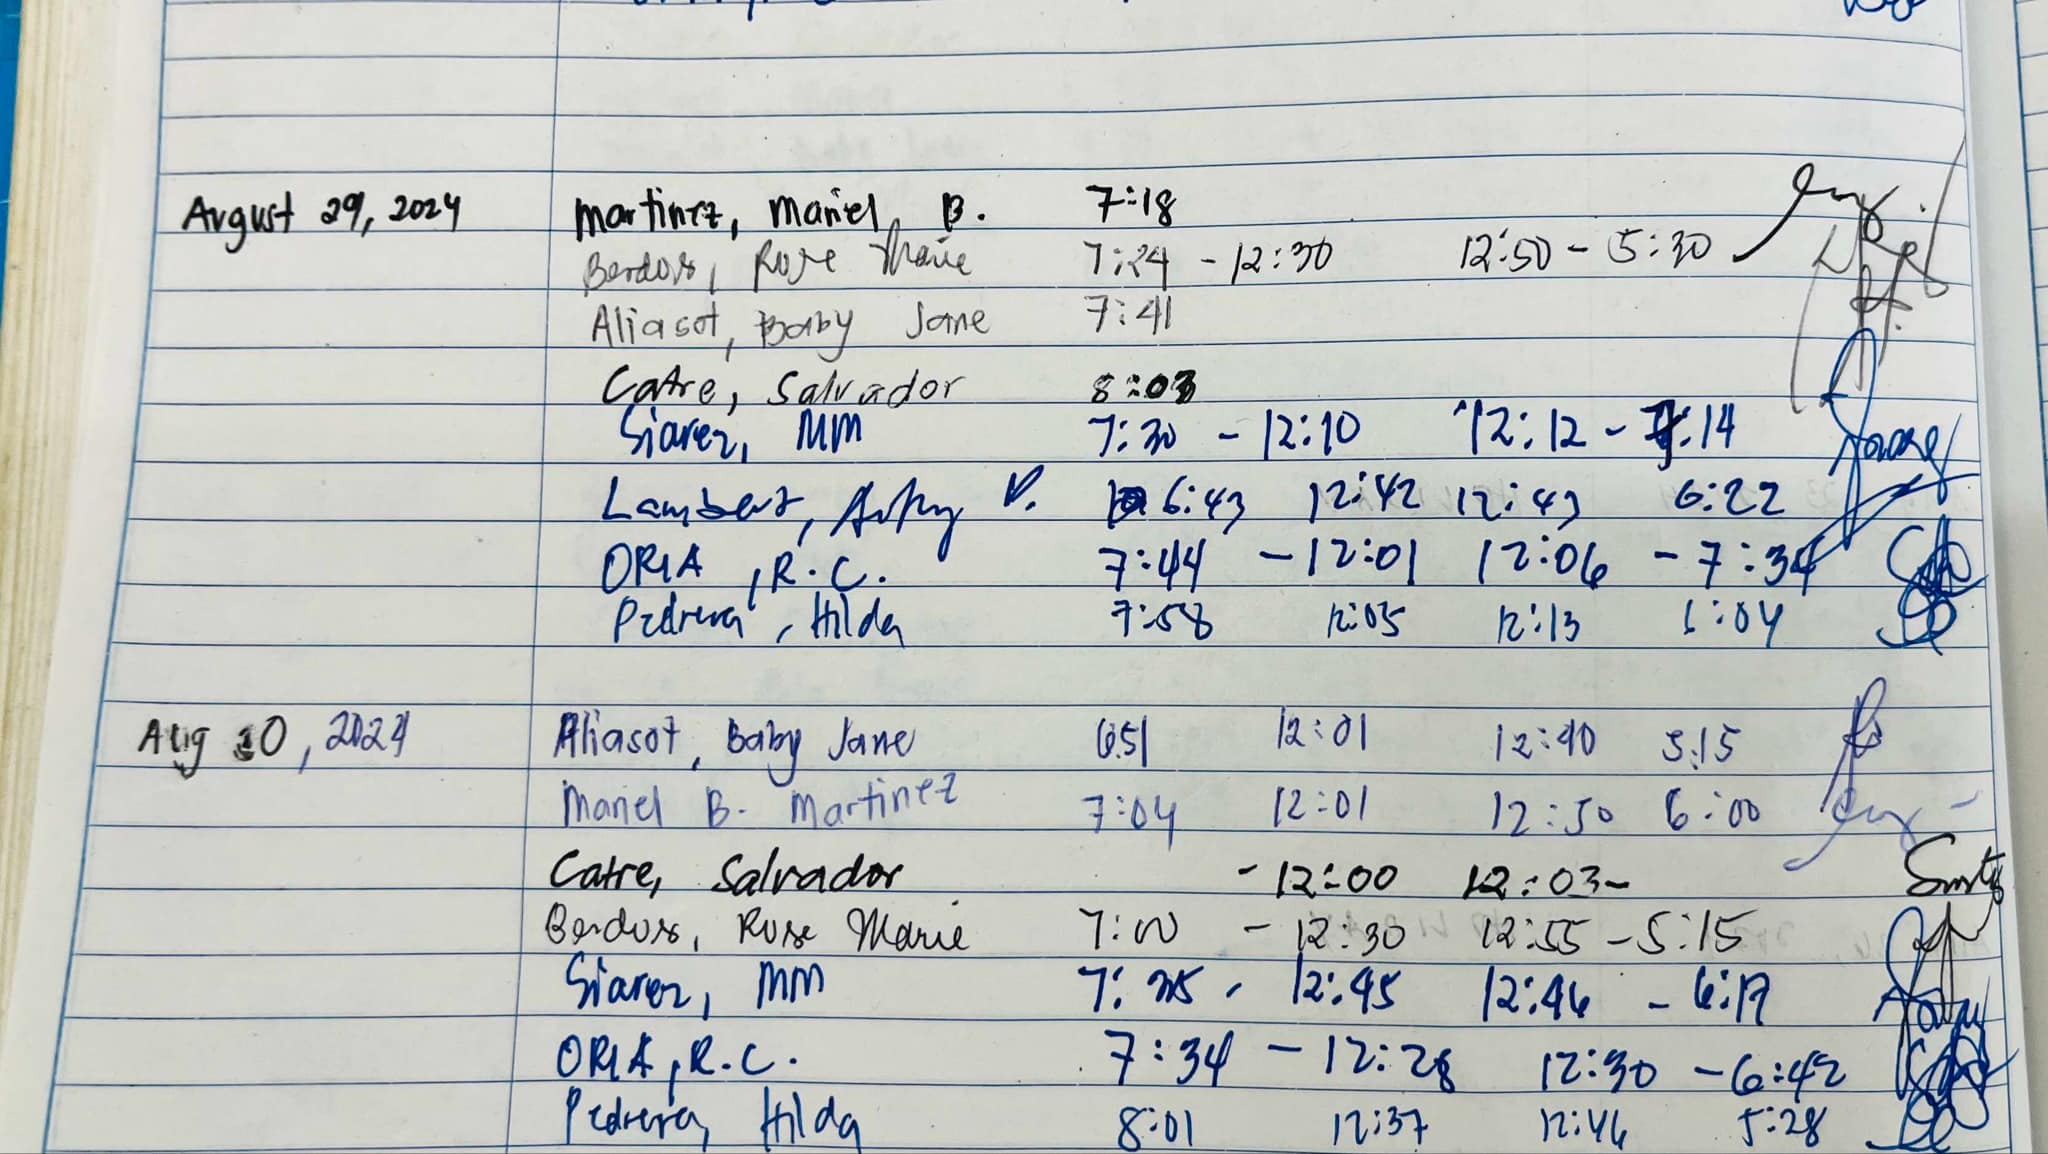 August 29, 2024 Martinez, Mariel B. 7:18
Berdos, Rose Marie 7:24 - 12:30 12:50 - 5:30
Aliasot, Baby Jane 7:41
Catre, Salvador 8:03
Siarez, MM 7:30 - 12:10 12:12 - 7:14
Lambert, V. 6:43 12:42 12:43 6:22
ORIA, R.C. 7:44 - 12:01 12:06 - 7:34
Pedrera, Hilda 7:58 12:05 12:13 6:04
Aug 30, 2024 Aliasot, Baby Jane 6:51 12:01 12:40 5:15
Mariel B. Martinez 7:04 12:01 12:50 6:00
Catre, Salvador - 12:00 12:03-
Berdos, Rose Marie 7:00 - 12:30 12:55 - 5:15
Siarez, MM 7:35 - 12:45 12:46 - 6:17
ORIA, R.C. 7:34 - 12:28 12:30 - 6:42
Pedrera, Hilda 8:01 12:37 12:46 5:28